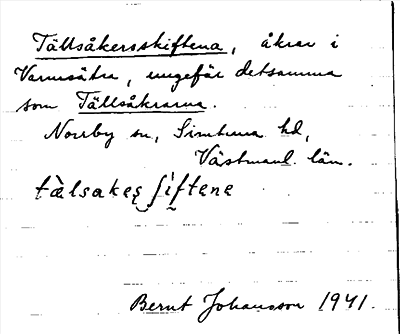 Tällsåkersskiftena, åkrar i
Varmsätra, ungefär detsamma
som Tällsåkrarna.
Norrby sn, Simtuna hd,
Västmanl. län.
tälsakeʂ ʃiftene
Bernt Johansson 1941.